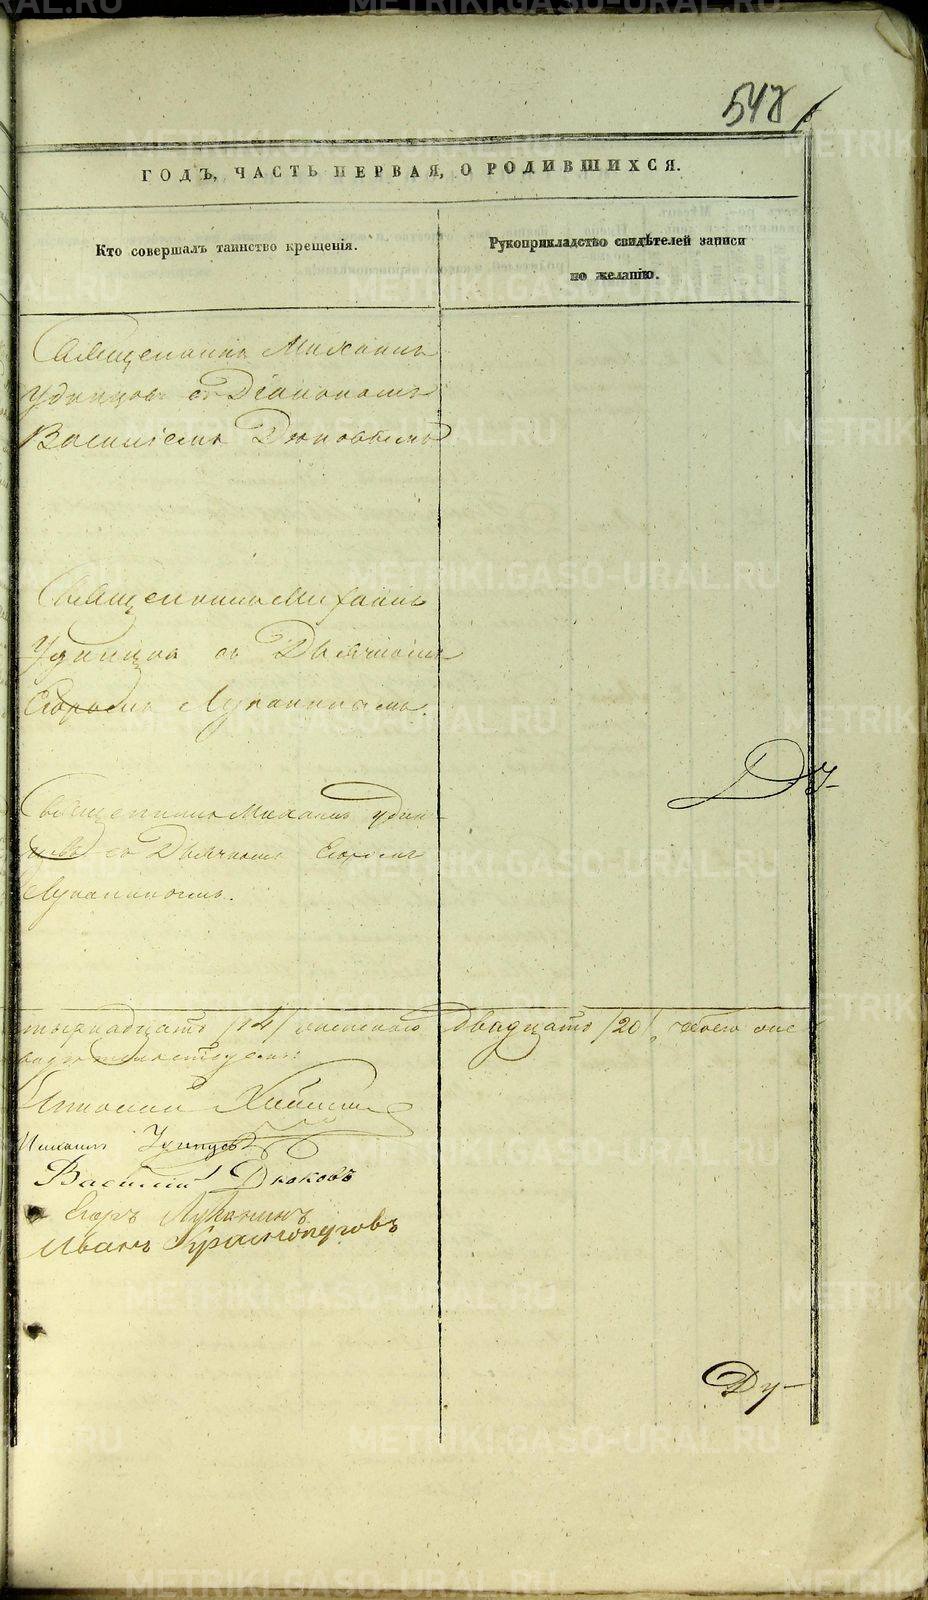 548
ГОДЪ, ЧАСТЬ ПЕРВАЯ, О РОДИВШИХСЯ.
Кто совершалъ таинство крещенія.
Рукоприкладство свидѣтелей записи
по желанію.
Священникъ Михаилъ
Удинцовъ съ Діакономъ
Василіемъ Дюковымъ
Священникъ Михаилъ
Удинцовъ съ Дьячкомъ
Егоромъ Луканинымъ.
Священникъ Михаилъ Удин-
цовъ съ Дьячкомъ Егоромъ
Луканинымъ.
тырнадцать /14/ женскаго двадцать /20/, обоего
Михаилъ Удинцовъ
Василій Дюковъ
Егоръ Луканинъ
Иванъ
Ду-
METRIKI.GASO-URAL.RU